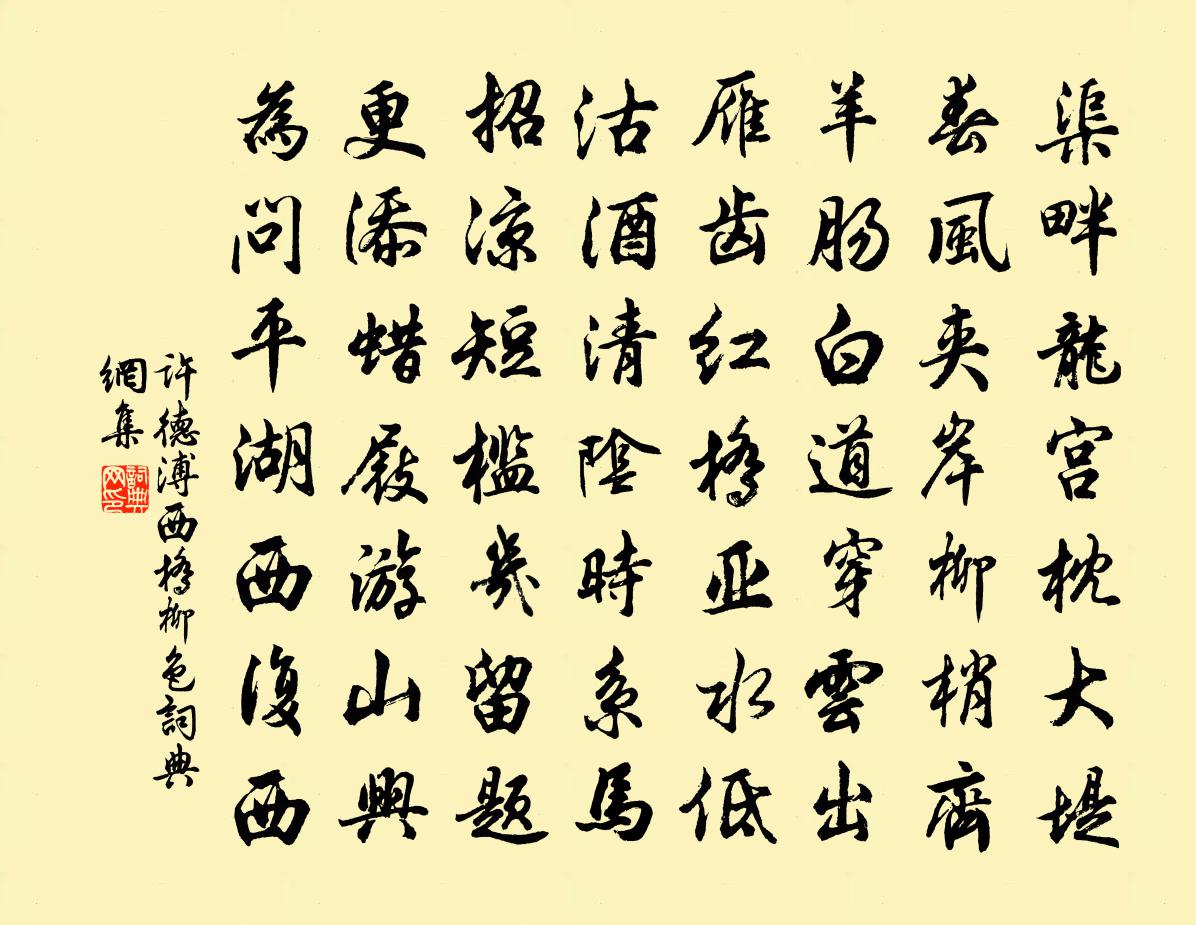 渠畔龍宫枕大堤
春風夾岸柳梢齊
羊肠白道穿雲出
雁齿红橋亚水低
沽酒清陰時系馬
招涼短檻幾留题
更添蜡屐游山興
為問平湖西復西
許德溥西橋柳色詞典
網集
詞典
网印